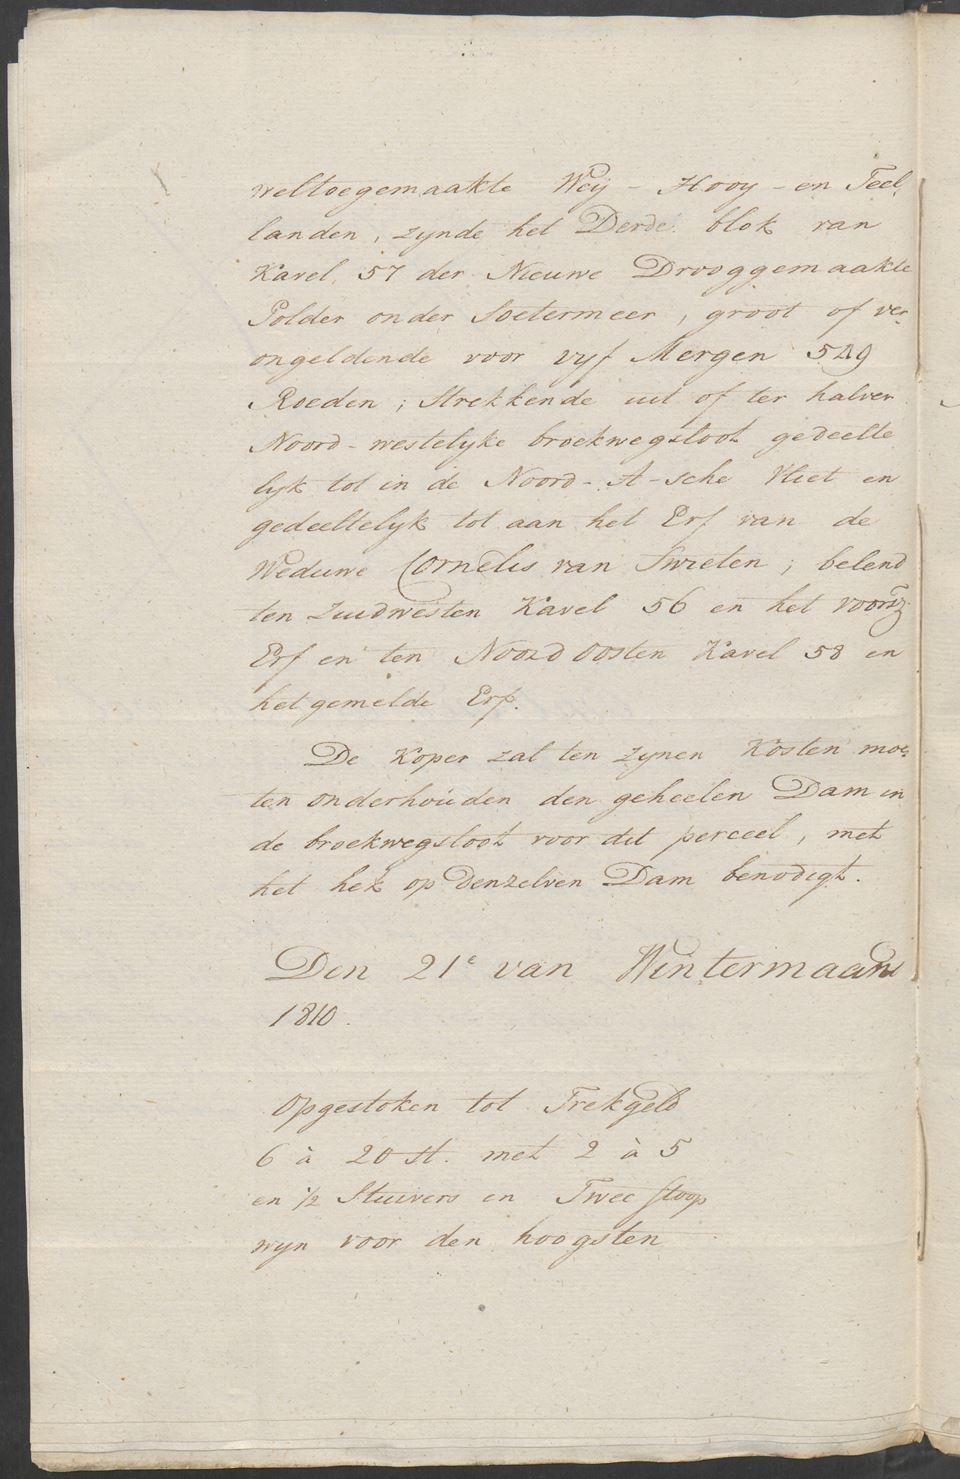 weltoegemaakte Weij - Hooy - en Teel-
landen, zynde het Derde blok van
Kavel 57 der Nieuwe Drooggemaakte
Polder onder Soetermeer, groot of ver-
ongeldende voor vyf Mergen 549
Roeden; Strekkende uit of ter halver
Noord-westelyke broekwegsloot gedeelte
lyk tot in de Noord-A-sche Vliet en
gedeeltelyk tot aan het Erf van de
Weduwe Cornelis van Swieten; belend
ten Zuidwesten Kavel 56 en het voorsz.
Erf en ten Noord oosten Kavel 58 en
het gemelde Erf.
De Koper zal ten zynen Kosten moe-
ten onderhouden den geheelen Dam in
de broekwegsloot voor dit perceel, met
het hek op denzelven Dam benodigt.
Den 21e van Wintermaand
1810.
Opgestoken tot Trekgeld
6 à 20 st. met 2 à 5
en 1/2 Stuivers en Twee stoop
wyn voor den hoogsten